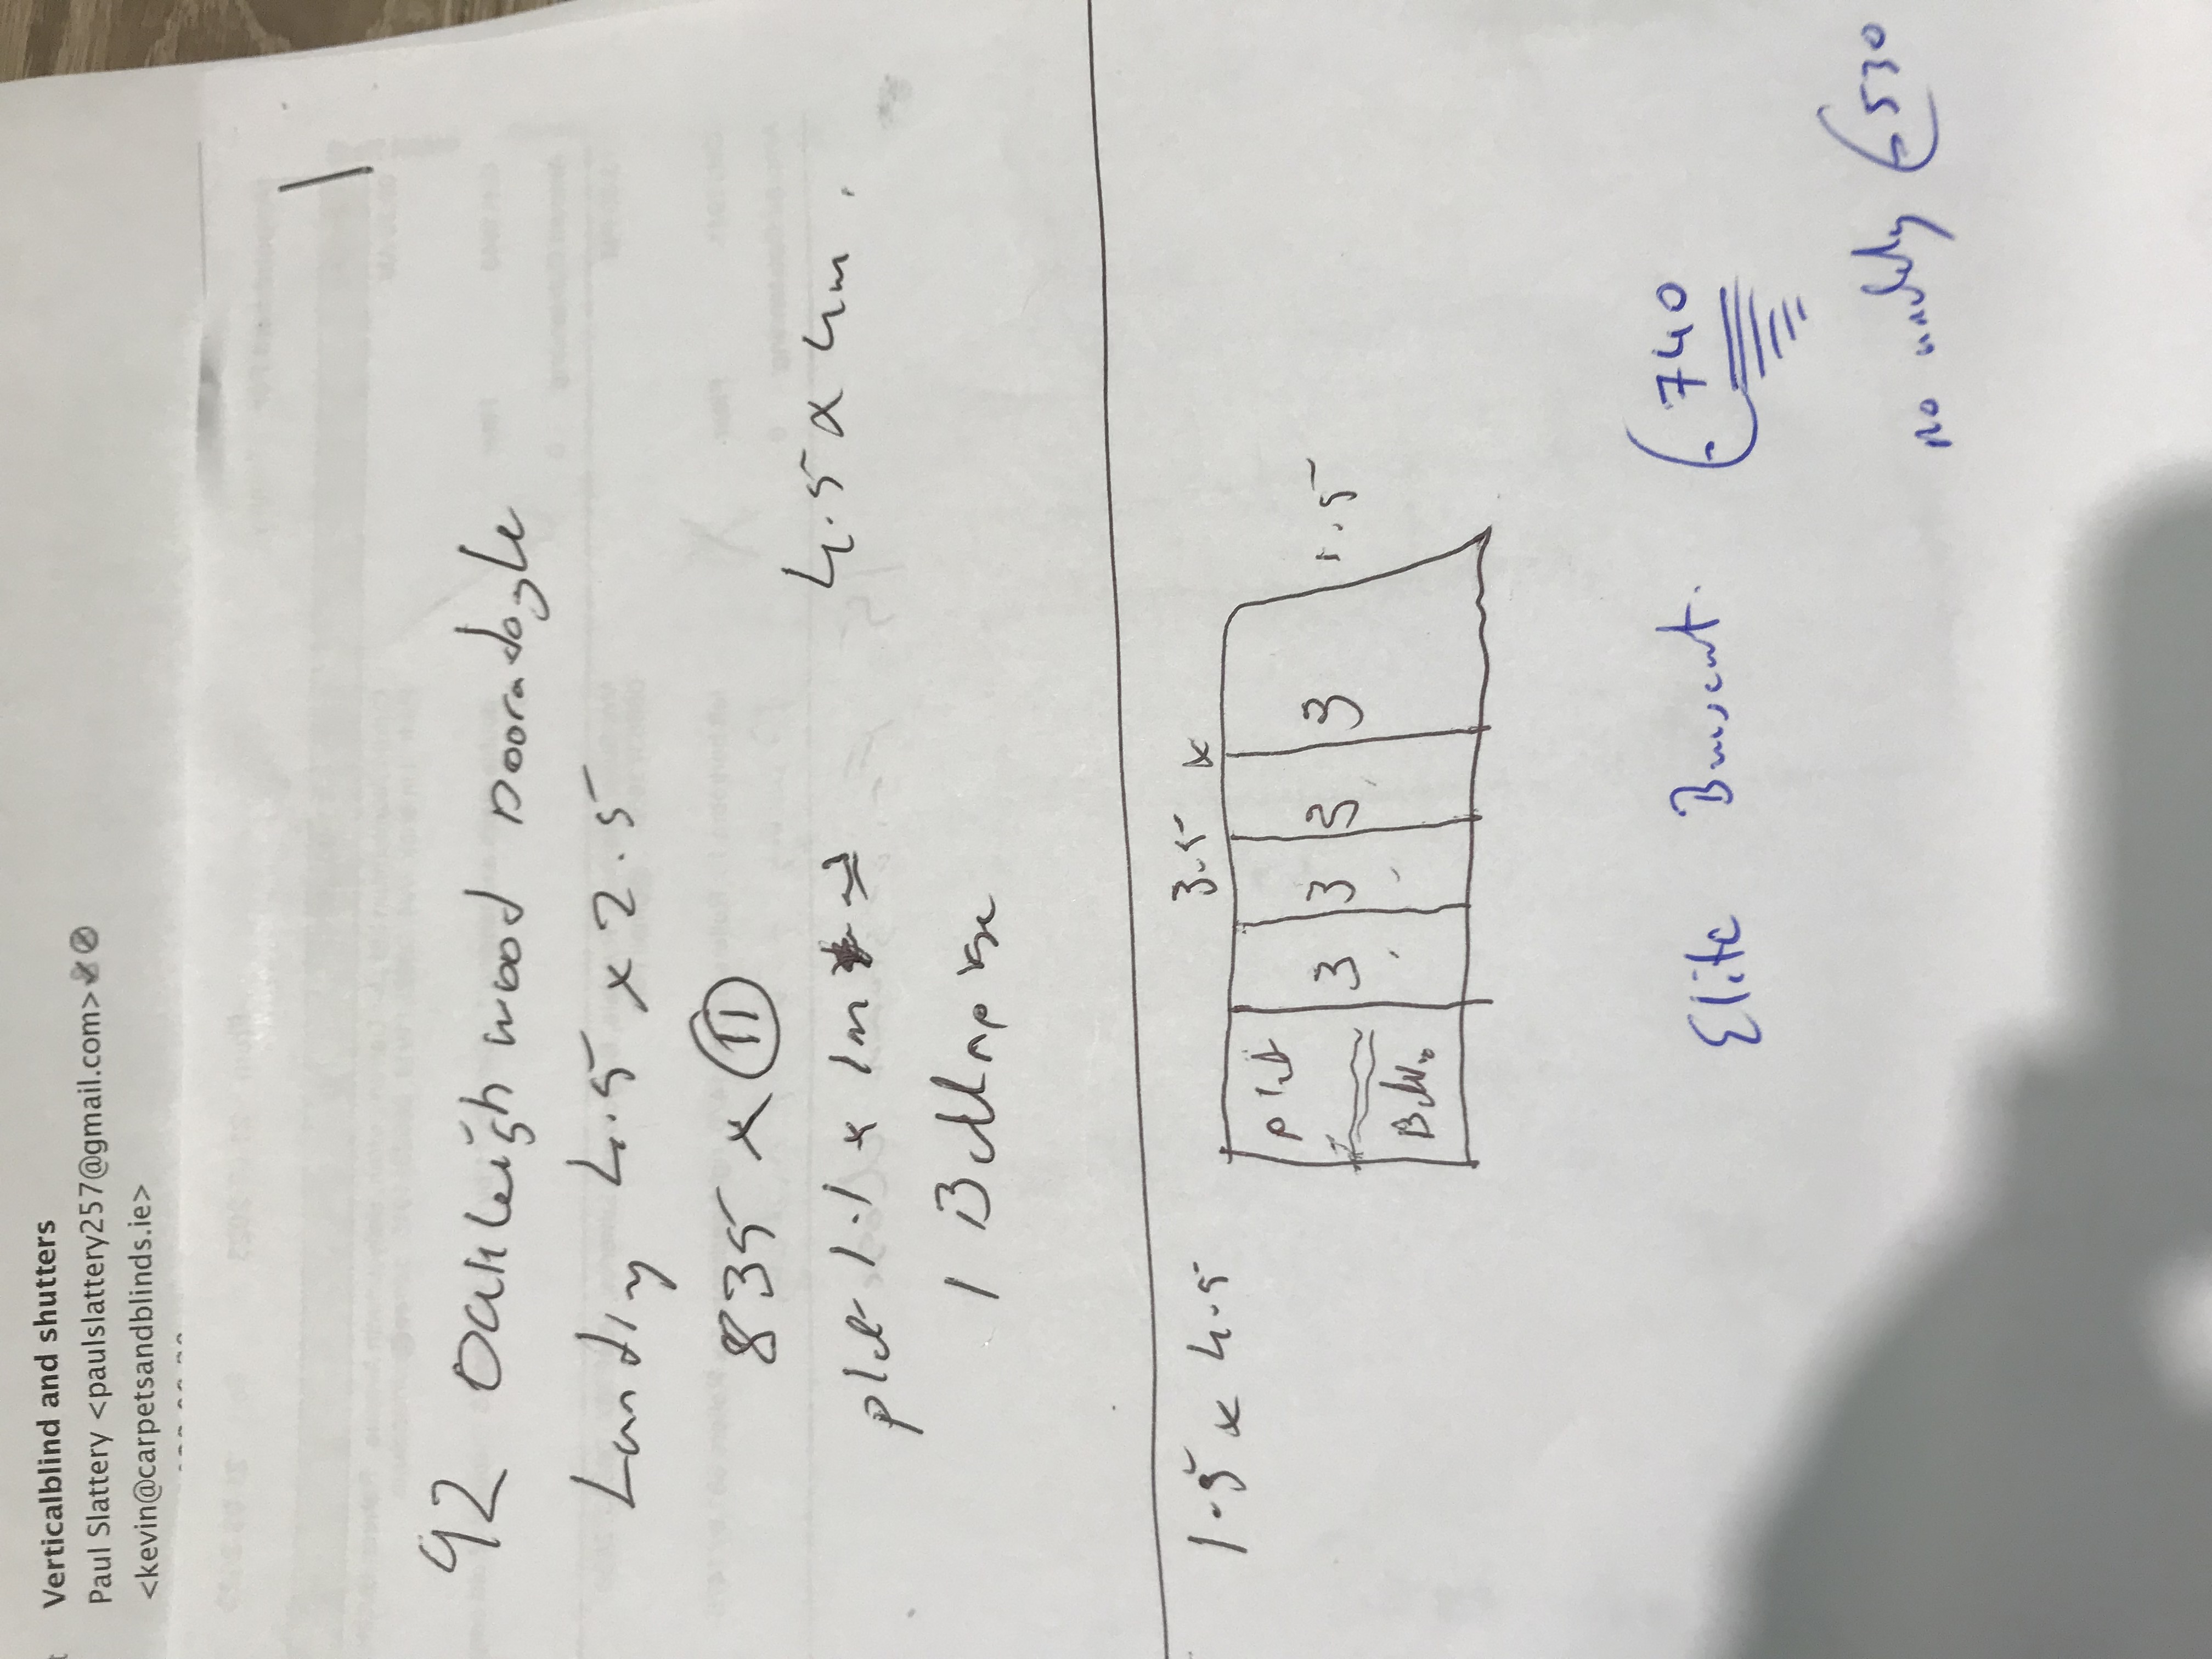 Verticalblind and shutters
Paul Slattery <paulslattery257@gmail.com>
<kevin@carpetsandblinds.ie>
92 Oakleigh wood Dooradoyle
Landing 4.5 x 2.5
835 x 11
4.5 x 4m.
plat 1.1 x 1m
1 Bullnose
1.5 x 4.5
3.5 x
1.5
plat 3 3 3 3
Bulln
Elite €740
no underlay €530